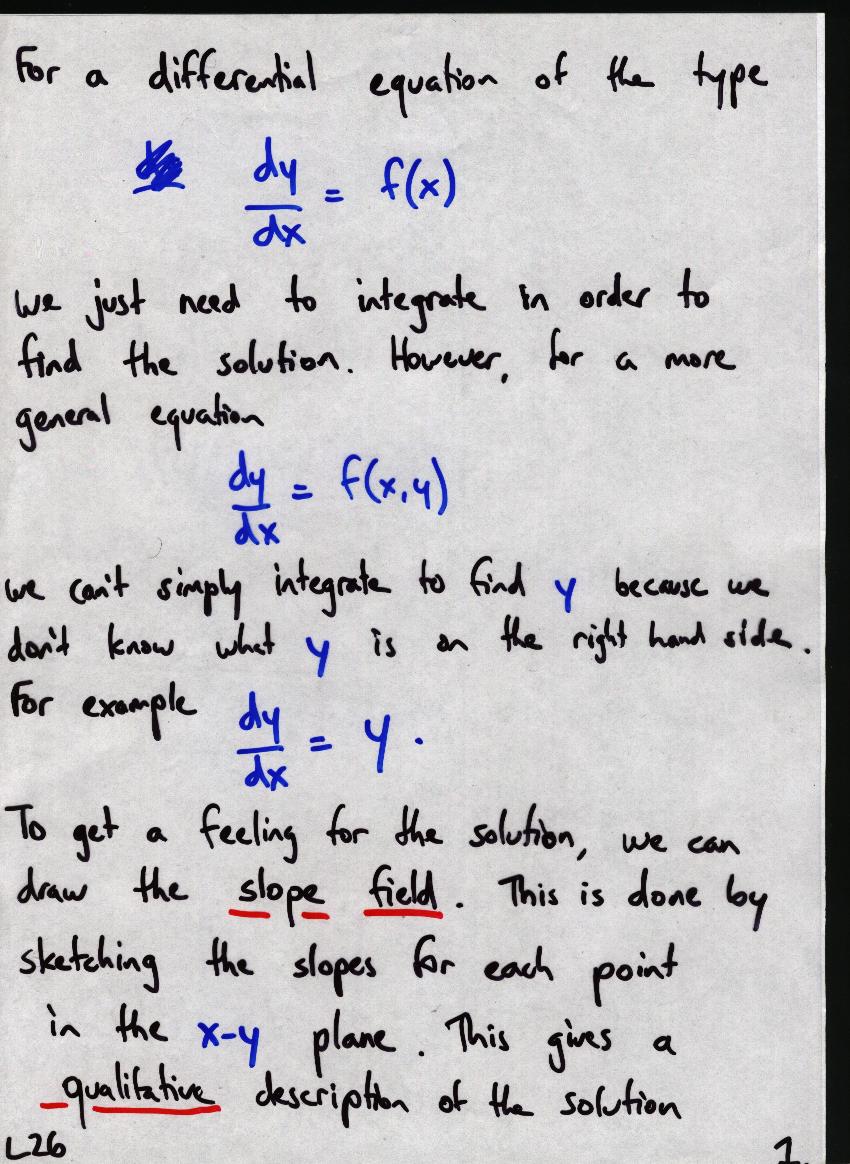 For a differential equation of the type
dy/dx = f(x)
we just need to integrate in order to
find the solution. However, for a more
general equation
dy/dx = f(x,y)
we can't simply integrate to find y because we
don't know what y is on the right hand side.
For example
dy/dx = y.
To get a feeling for the solution, we can
draw the slope field. This is done by
sketching the slopes for each point
in the x-y plane. This gives a
qualitative description of the solution
L26 1.